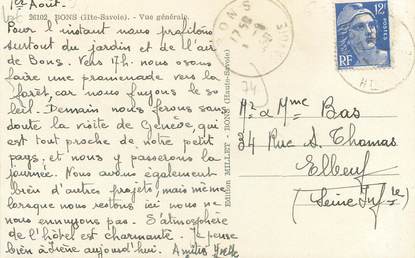 1er Août.
26102. BONS (Hte-Savoie). - Vue générale.
Pour l'instant nous profitons
surtout du jardin et de l'air
de Bons. Vers 17h. nous osons
faire une promenade vers la
forêt, car nous fuyons le so
leil. Demain nous ferons sans
doute la visite de Genève, qui
est tout proche de notre petit
pays, et nous y passerons la
journée. Nous avons également
bien d'autres projets, mais même
lorsque nous restons ici nous ne
nous ennuyons pas. L'atmosphère
de l'hôtel est charmante. Je pense
bien à Irène aujourd'hui. Amitiés
Edition MILLET - BONS (Haute-Savoie)
BONS
12F
POSTES
RF
74
Mr & Mme Bas
34 Rue A. Thomas
Elbeuf
(Seine Infre)